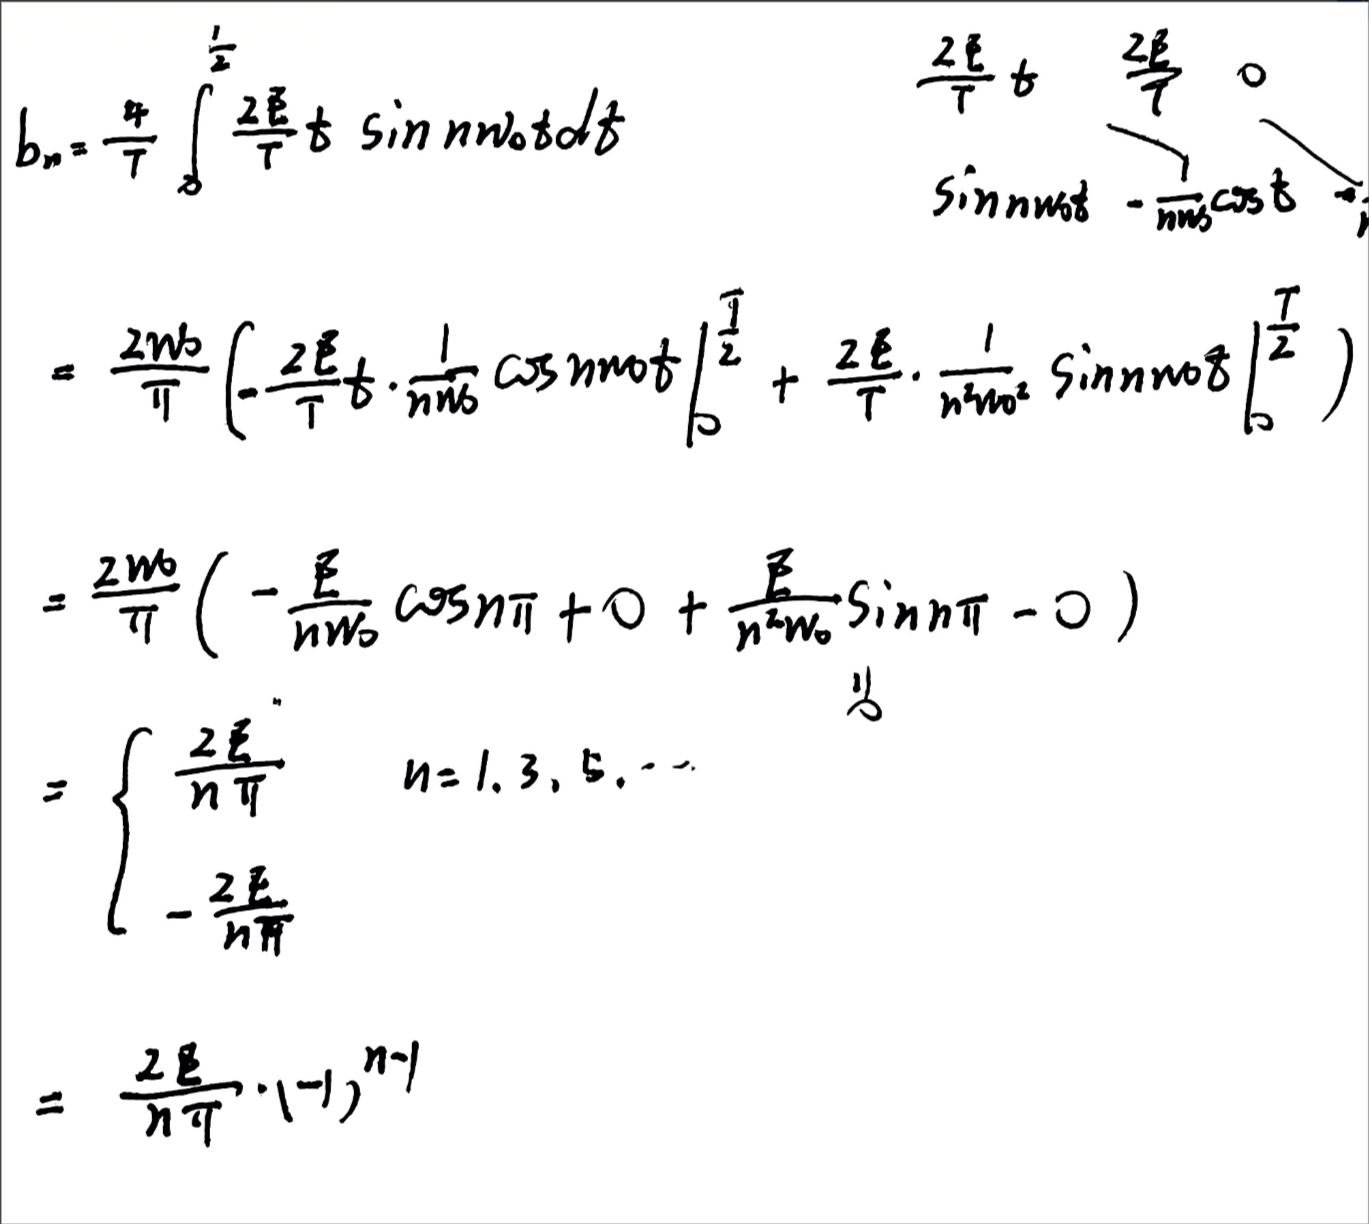 bₙ = 4/T ∫₀^{1/2} 2E/T t sin nw₀t dt
2E/T t 2E/T 0
sin nw₀t - 1/nw₀ cos t
= 2w₀/π ( - 2E/T t · 1/nw₀ cos nw₀t |₀^{T/2} + 2E/T · 1/n²w₀² sin nw₀t |₀^{T/2} )
= 2w₀/π ( - E/nw₀ cos nπ + 0 + E/n²w₀ sin nπ - 0 )
= 0
= { 2E/nπ n = 1, 3, 5, ...
- 2E/nπ
= 2E/nπ · (-1)^{n-1}